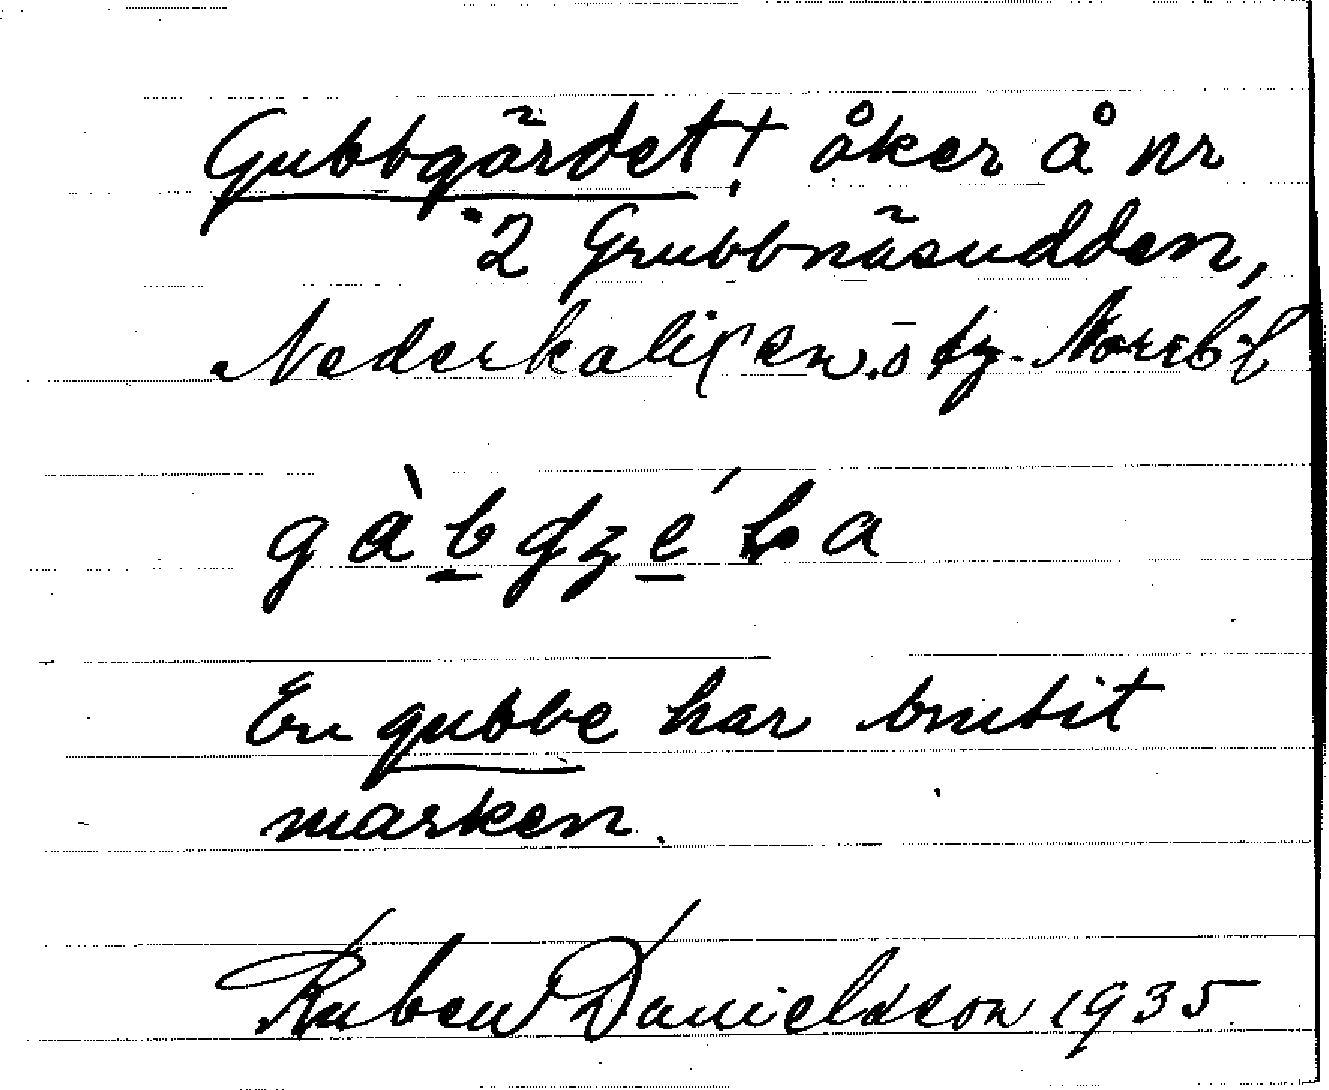 Gubbgärdet! åker å nr
2 Grubbnäsudden,
Nederkalix sn. Norrb.
En gubbe har brutit
marken.
Ruben Danielsson 1935.